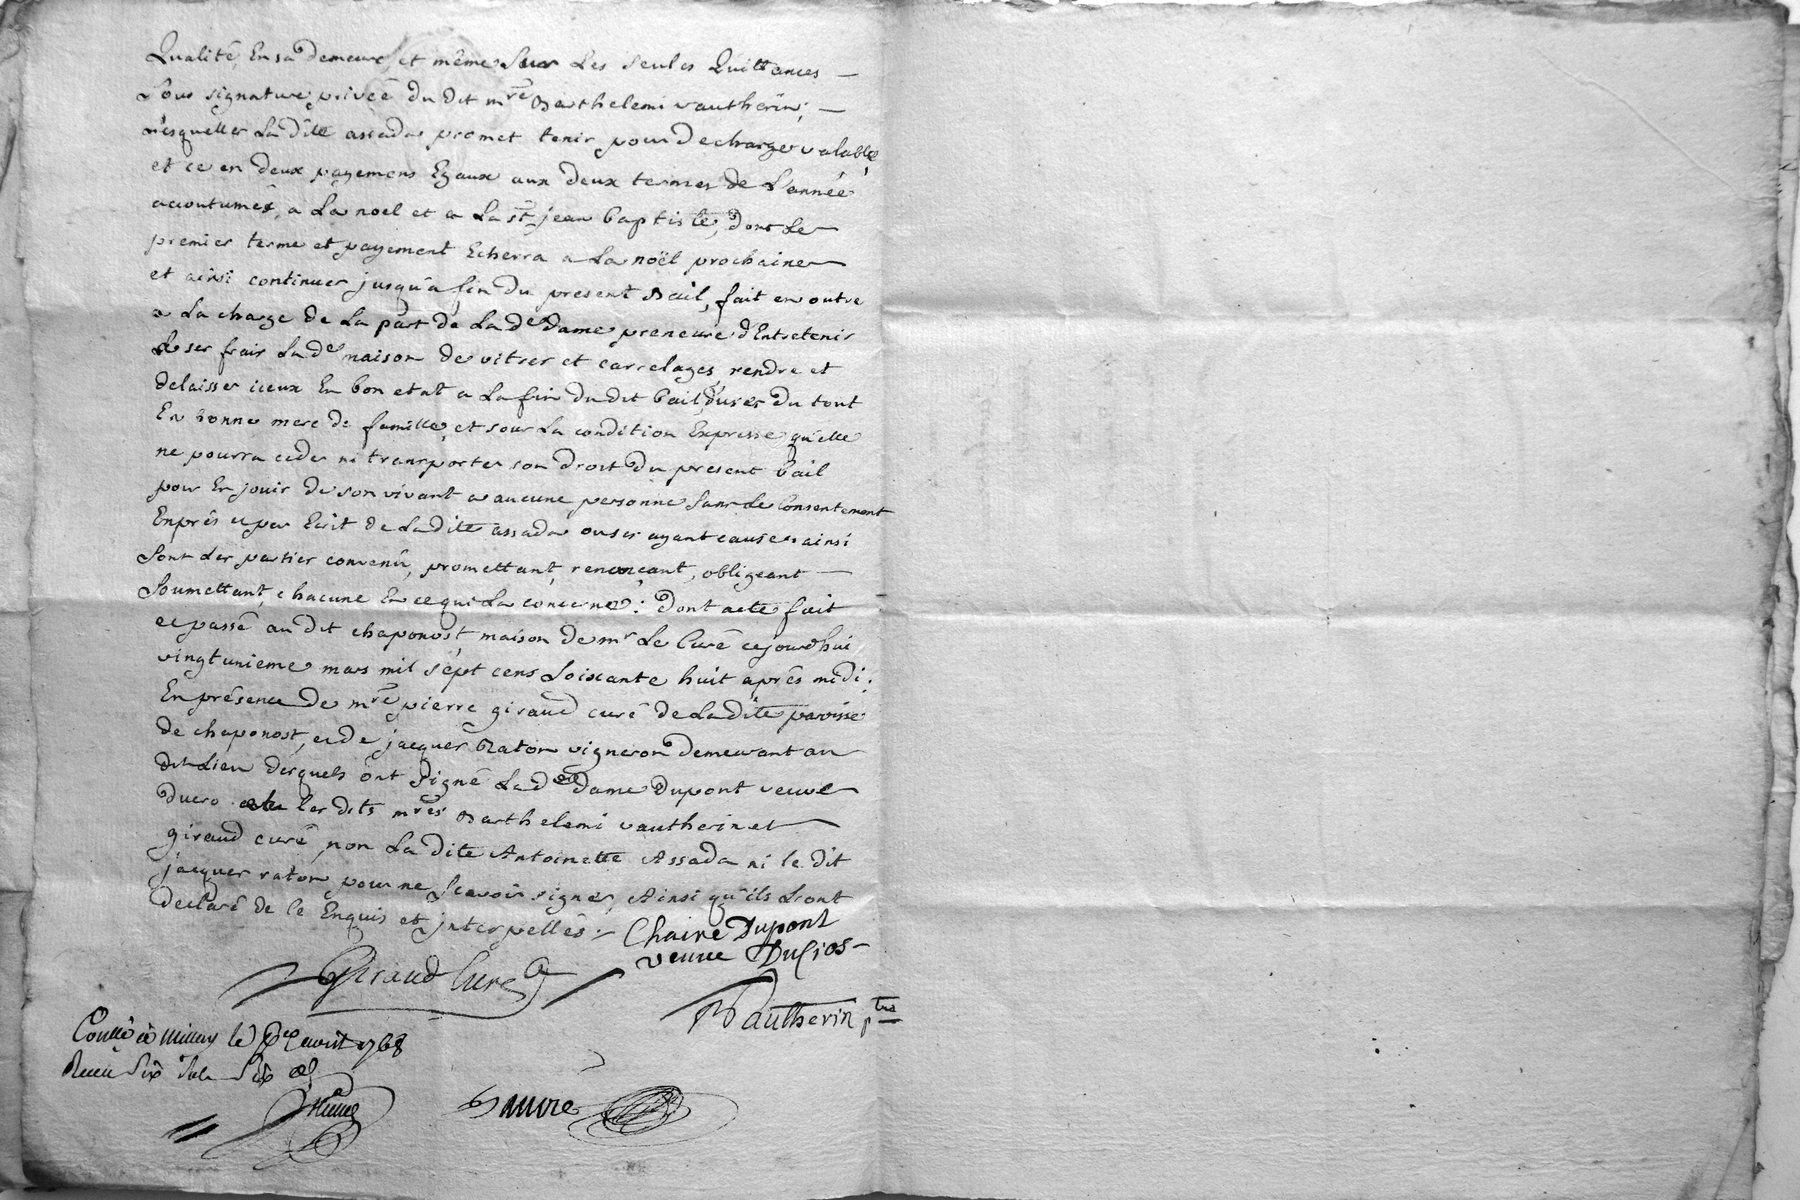 Qualité, En sa demeure, et même sur les seules Quittances —
sous signature privée du dit mre Barthelemi vautherin, —
lesquelles La dite assada promet tenir pour decharge valable,
et ce en deux payemens Egaux aux deux termes de L'année
accoutumés, a La noel et a La st jean baptiste, dont Le
premier terme et payement Echerra a La noël prochaine
et ainsi continuer jusqu'a fin du present Bail, fait en outre
a La charge de La part de La de Dame preneure d'Entretenir
a ses frais La de maison de vitres et carrelages, rendre et
delaisser iceux En bon etat a La fin du dit bail, d'user du tout
En bonne mere de famille, et sous La condition Expresse qu'elle
ne pourra ceder ni transporter son droit du present bail
pour En jouir de son vivant a aucune personne sans Le Consentement
Exprès et par Ecrit de La dite assada ou ses ayant cause. ainsi
sont Les parties convenû, promettant, renonceant, obligeant —
soumettant, chacune En ce qui La concerne: Dont acte fait
et passé au dit chaponost, maison de mr Le Curé cejourd'hui
vingtunieme mars mil sept cens soixante huit après midi;
En présence de mre pierre giraud curé de La dite paroisse
de chaponost, et de jacques Raton vigneron demeurant au
dit Lieu desquels ont signé La de Dame Dupont veuve
Ducro les dits mres Barthelemi vautherin et
giraud curé, non La dite Antoinette Assada ni le dit
jacques raton pour ne sçavoir signer, Ainsi qu'ils L'ont
declaré de ce Enquis et interpellés. —
Chaire Dupont
veuve DuCros —
Giraud Curé
Vautherin ptre
Conllé à Millery le avril 1768
Receu six sols six d